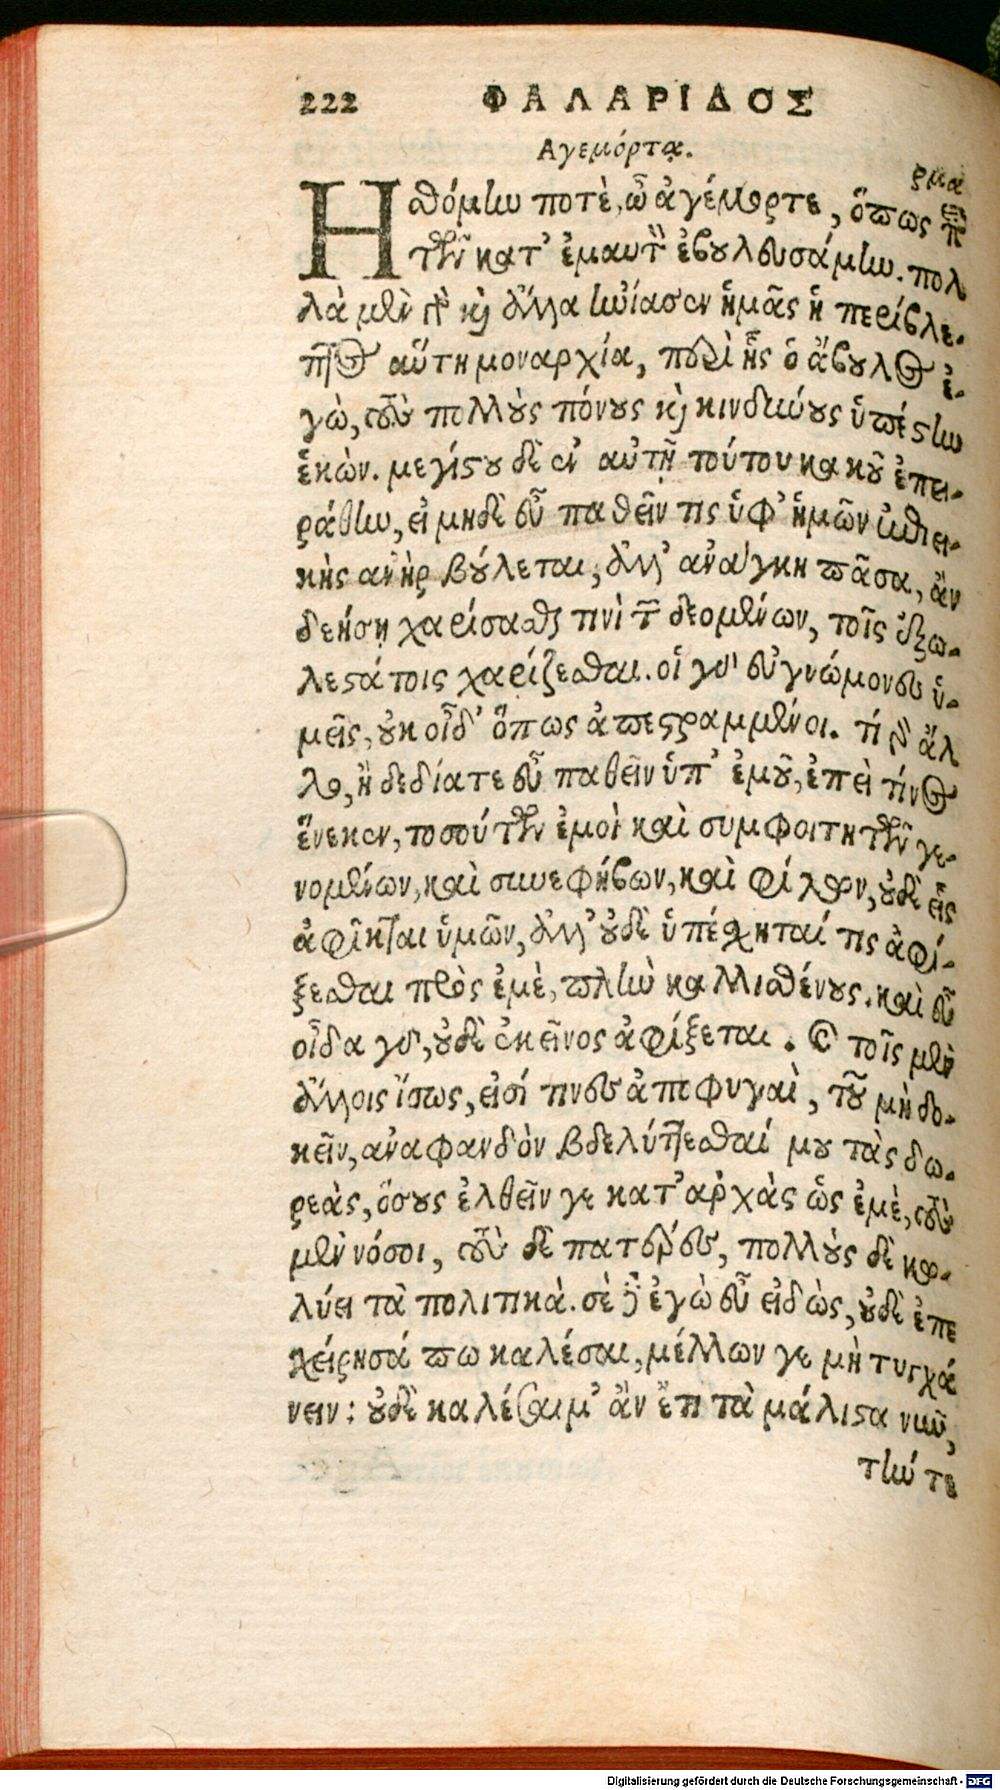 222 ΦΑΛΑΡΙΔΟΣ
Αγεμόρτᾳ.
Ησθόμην ποτὲ, ὦ ἀγέμορτε, ὅπως ἐπὶ
τῶν κατ' ἐμαυτὸν ἐβουλευσάμην. πολ
λὰ μὲν καὶ ἄλλα ἠνίασεν ἡμᾶς ἡ περίβλε-
πτος αὕτη μοναρχία, περὶ ἧς ὁ ἄβουλος ἐ-
γὼ, τοὺς πολλοὺς πόνους καὶ κινδύνους ὑπέστην
ἑκών. μεγίστου δὲ ἐν αὐτῇ τούτου κακοῦ ἐπει-
ράθην, εἰ μηδὲ εὖ παθεῖν τις ὑφ' ἡμῶν ἐπιει-
κὴς ἀνὴρ βούλεται, ἀλλ' ἀνάγκη πᾶσα, ἂν
δεήσῃ χαρίσασθαί τινι τῶν δεομένων, τοῖς ἐξω-
λεστάτοις χαρίζεσθαι. οἱ γὰρ εὐγνώμονες ὑ-
μεῖς, οὐκ οἶδ' ὅπως ἀπεστραμμένοι. τί γὰρ ἄλ
λο, ἢ δεδίατε εὖ παθεῖν ὑπ' ἐμοῦ, ἐπεὶ τίνος
ἕνεκεν, τοσούτων ἐμοὶ καὶ συμφοιτητῶν γε-
νομένων, καὶ συνεφήβων, καὶ φίλων, οὐδὲ εἷς
ἀφῖκται ὑμῶν, ἀλλ' οὐδὲ ὑπέσχηταί τις ἀφί-
ξεσθαι πρὸς ἐμὲ, πλὴν καλλισθένους. καὶ εὖ
οἶδα γὰρ, οὐδὲ ἐκεῖνος ἀφίξεται. καὶ τοῖς μὲν
ἄλλοις ἴσως, εἰσί τινες ἀποφυγαὶ, τοῦ μὴ δο-
κεῖν, ἀναφανδὸν βδελύττεσθαί μου τὰς δω-
ρεὰς, ὅσους ἐλθεῖν γε κατ' ἀρχὰς ὡς ἐμὲ, τοὺς
μὲν νόσοι, τοὺς δὲ πατέρες, πολλοὺς δὲ κω-
λύει τὰ πολιτικά. σὲ δὲ ἐγὼ εὖ εἰδὼς, οὐδὲ ἐπε
χείρησά πω καλέσαι, μέλλων γε μὴ τυγχά
νειν: οὐδὲ καλέσαιμ' ἂν ἔτι τὰ μάλιστα νῦν,
τήν τε